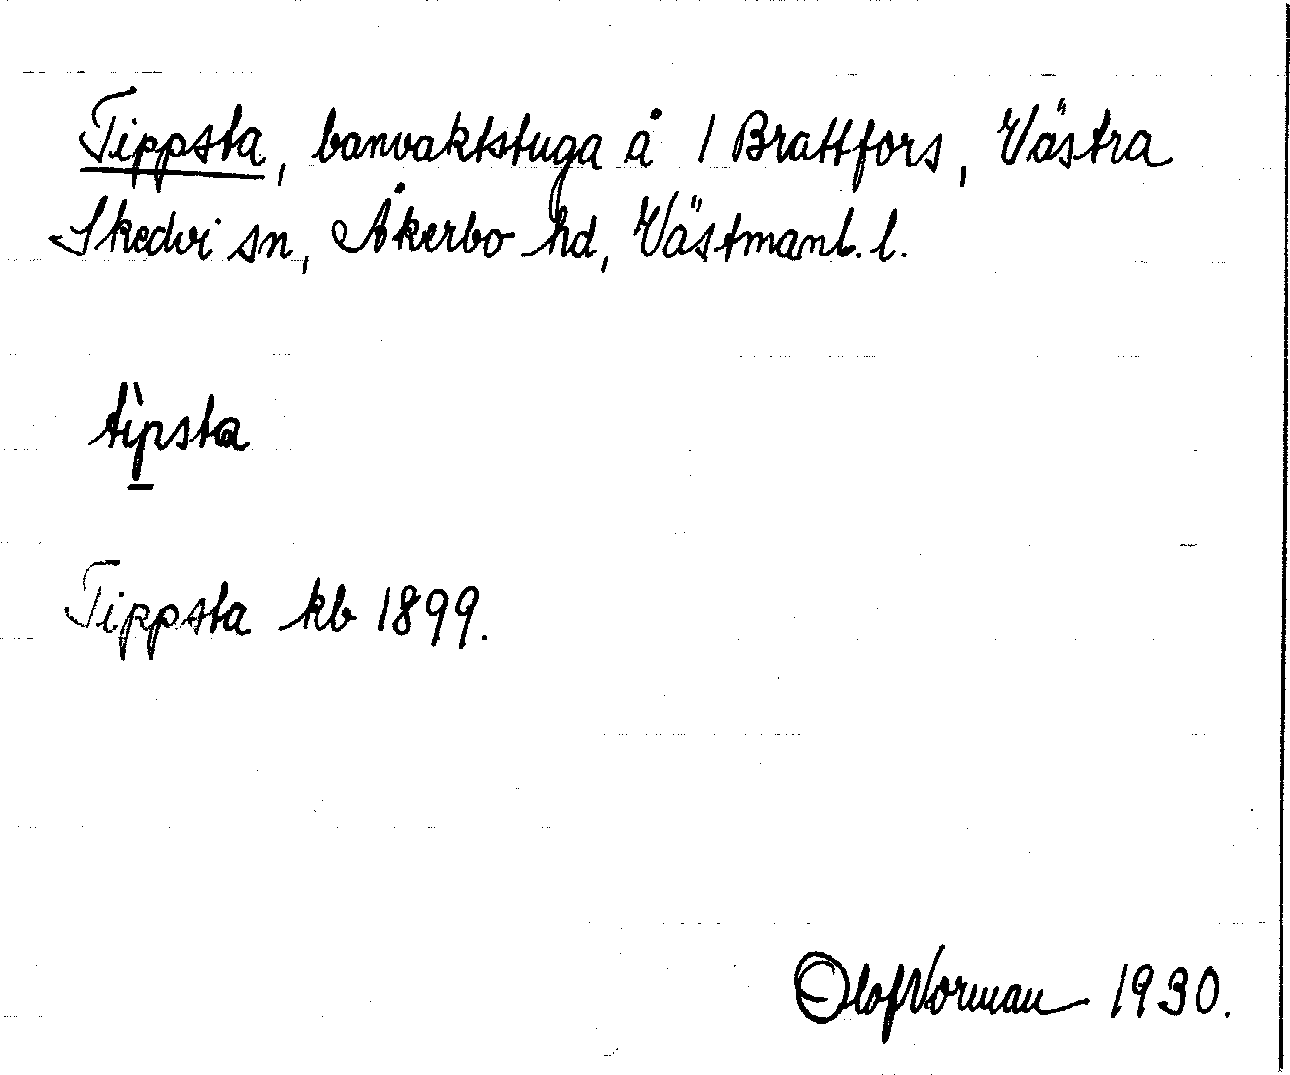 Tippsta, banvaktstuga å 1 Brattfors, Västra
Skedvi sn, Åkerbo hd, Västmanl. l.
tìp̲sta
Tippsta kb 1899.
Olof Norman 1930.